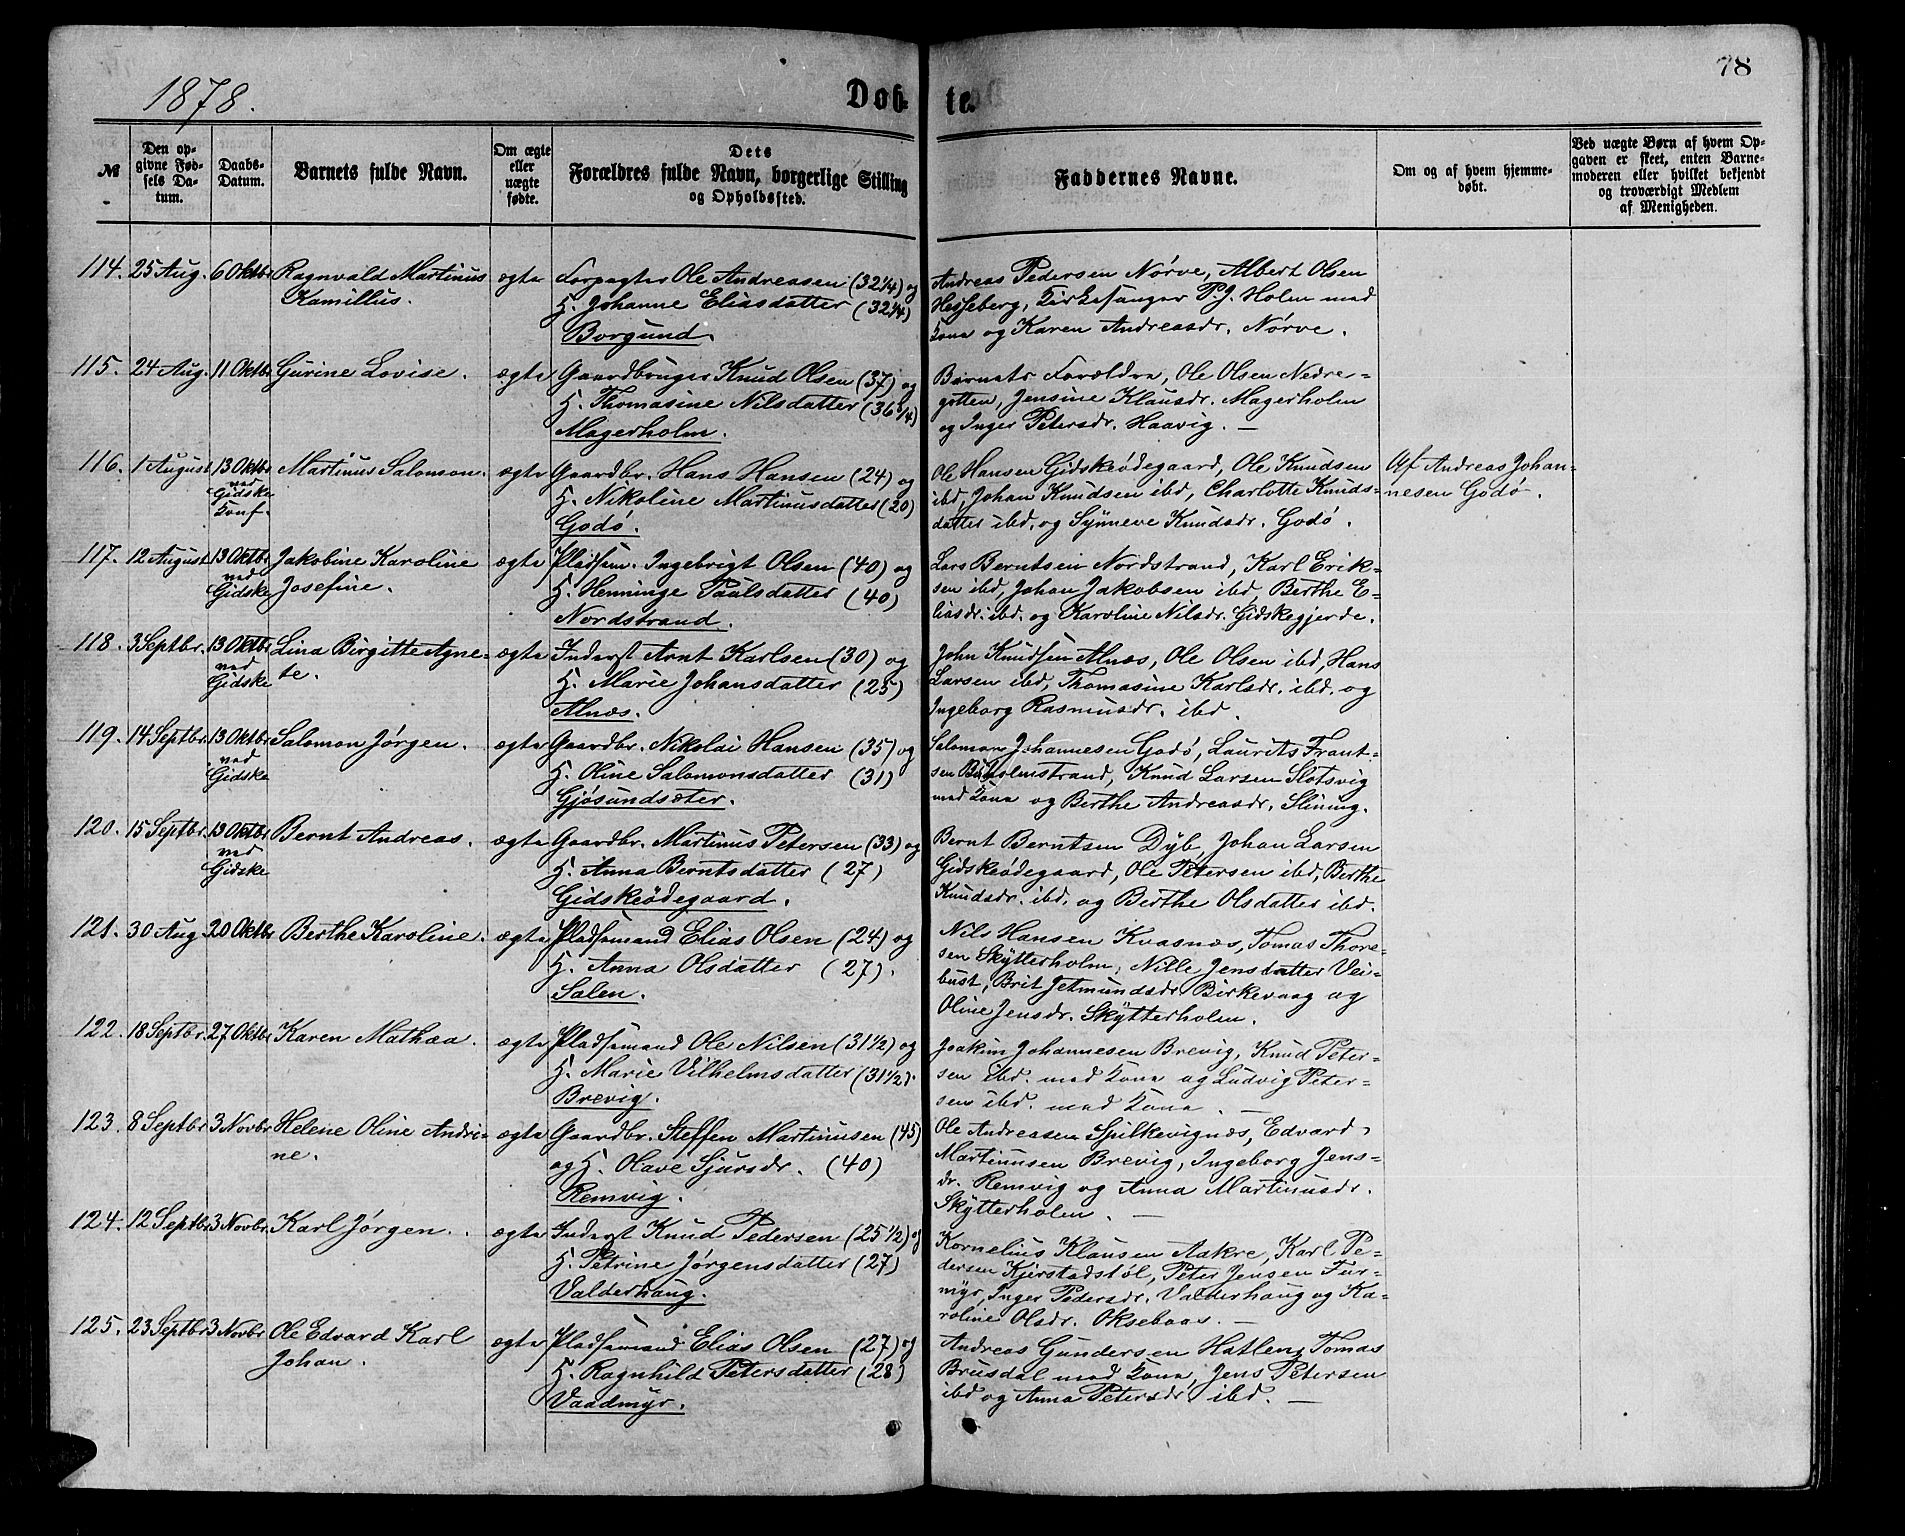 1878.
Døb-
te.
78
№
Den op-
givne Fød-
sels Da-
tum.
Daabs-
Datum.
Barnets fulde Navn.
Om ægte
eller
uægte
fødte.
Dets
Forældres fulde Navn, borgerlige Stilling
og Opholdssted.
Faddernes Navne.
Om og af hvem hjemme-
døbt.
Ved uægte Børn af hvem Op-
gaven er skeet, enten Barne-
moderen eller hvilket bekjendt
og troværdigt Medlem
af Menigheden.
114. 25 Aug. 6 Oktbr Ragnvald Martinus ægte Forpagter Ole Andreasen (32 1/4) og
Kamillus. H. Johanne Eliasdatter (32 3/4)
Borgund.
Andreas Pedersen Nørve, Albert Olsen
Hesseberg, Kirkesanger P.J. Holm med
Kone og Karen Andreasdr. Nørve.
115. 24 Aug. 11 Oktbr Gurine Lovise. ægte Gaardbruger Knud Olsen (37) og
H. Thomasine Nilsdatter (36 1/4)
Magerholm.
Barnets Forældre, Ole Olsen Nedre-
gotten, Jensine Klausdr. Magerholm
og Inger Petersdr. Haavig. —
116. 1 August 13 Oktbr Martinus Salomon. ægte Gaardbr. Hans Hansen (24) og
ved
Gidske
Konf.
H. Nikoline Martinusdatter (20)
Godø.
Ole Hansen Gidskeødegaard, Ole Knudsen
ibd, Johan Knudsen ibd, Charlotte Knuds-
datter ibd, og Synneve Knudsdr. Godø.
Af Andreas Johan-
nesen Godø.
117. 12 August 13 Oktbr Jakobine Karoline ægte Pladsem. Ingebrigt Olsen (40) og
ved
Gidske
Josefine. H. Henninge Paulsdatter (40)
Nordstrand.
Lars Berntsen Nordstrand, Karl Erik-
sen ibd, Johan Jakobsen ibd, Berthe E-
liasdr. ibd. og Karoline Nilsdr. Gidskegjerde.
118. 3 Septbr. 13 Oktbr Lina Birgitte Agne- ægte Inderst Arnt Karlsen (30) og
ved
Gidske
te. H. Marie Johansdatter (25)
Alnæs.
John Knudsen Alnæs, Ole Olsen ibd, Hans
Larsen ibd, Thomasine Karlsdr. ibd. og
Ingeborg Rasmusdr. ibd.
119. 14 Septbr. 13 Oktbr Salomon Jørgen. ægte Gaardbr. Nikolai Hansen (35) og
ved
Gidske
H. Oline Salomonsdatter (31)
Gjøsundsæter.
Salomon Johannesen Godø, Laurits Frant-
sen Buholmstrand, Knud Larsen Slotsvig
med Kone og Berthe Andreasdr. Slining.
120. 15 Septbr. 13 Oktbr Bernt Andreas. ægte Gaardbr. Martinus Petersen (33) og
ved
Gidske
H. Anna Berntsdatter (27)
Gidskeødegaard.
Bernt Berntsen Dyb, Johan Larsen
Gidskeødegaard, Ole Petersen ibd, Berthe
Knudsdr. ibd. og Berthe Olsdatter ibd.
121. 30 Aug. 20 Oktbr Berthe Karoline. ægte Pladsemand Elias Olsen (24) og
H. Anna Olsdatter (27).
Salen.
Nils Hansen Kvasnæs, Tomas Thore-
sen Skytterholm, Nille Jensdatter Vei-
bust, Brit Jetmundsdr. Birkevaag og
Oline Jensdr. Skytterholm.
122. 18 Septbr. 27 Oktbr Karen Mathea. ægte Pladsemand Ole Nilsen (31 1/2) og
H. Marie Vilhelmsdatter (31 1/2).
Brevig.
Joakim Johannesen Brevig, Knud Peter-
sen ibd. med Kone og Ludvig Peter-
sen ibd. med Kone. —
123. 8 Septbr 3 Novbr Helene Oline Andri- ægte Gaardbr. Steffen Martinusen (45)
ne. og H. Olave Sjursdr. (40)
Remvig.
Ole Andreasen Spilkevignæs, Edvard
Martinusen Brevig, Ingeborg Jens-
dr. Remvig og Anna Martinusdr.
Skytterholm. —
124. 12 Septbr 3 Novbr. Karl Jørgen. ægte Inderst Knud Pedersen (25 1/2) og
H. Petrine Jørgensdatter (27)
Valderhaug.
Kornelius Klausen Aakre, Karl Pe-
dersen Kjerstadstøl, Peter Jensen Fur-
myr, Inger Pedersdr. Valderhaug og Ka-
roline Olsdr. Oksebaas. —
125. 23 Septbr 3 Novbr. Ole Edvard Karl ægte Pladsemand Elias Olsen (27) og
Johan. H. Ragnhild Petersdatter (28)
Vaadmyr.
Andreas Gundersen Hatlen, Tomas
Brusdal med Kone, Jens Petersen
ibd og Anna Petersdr ibd. —